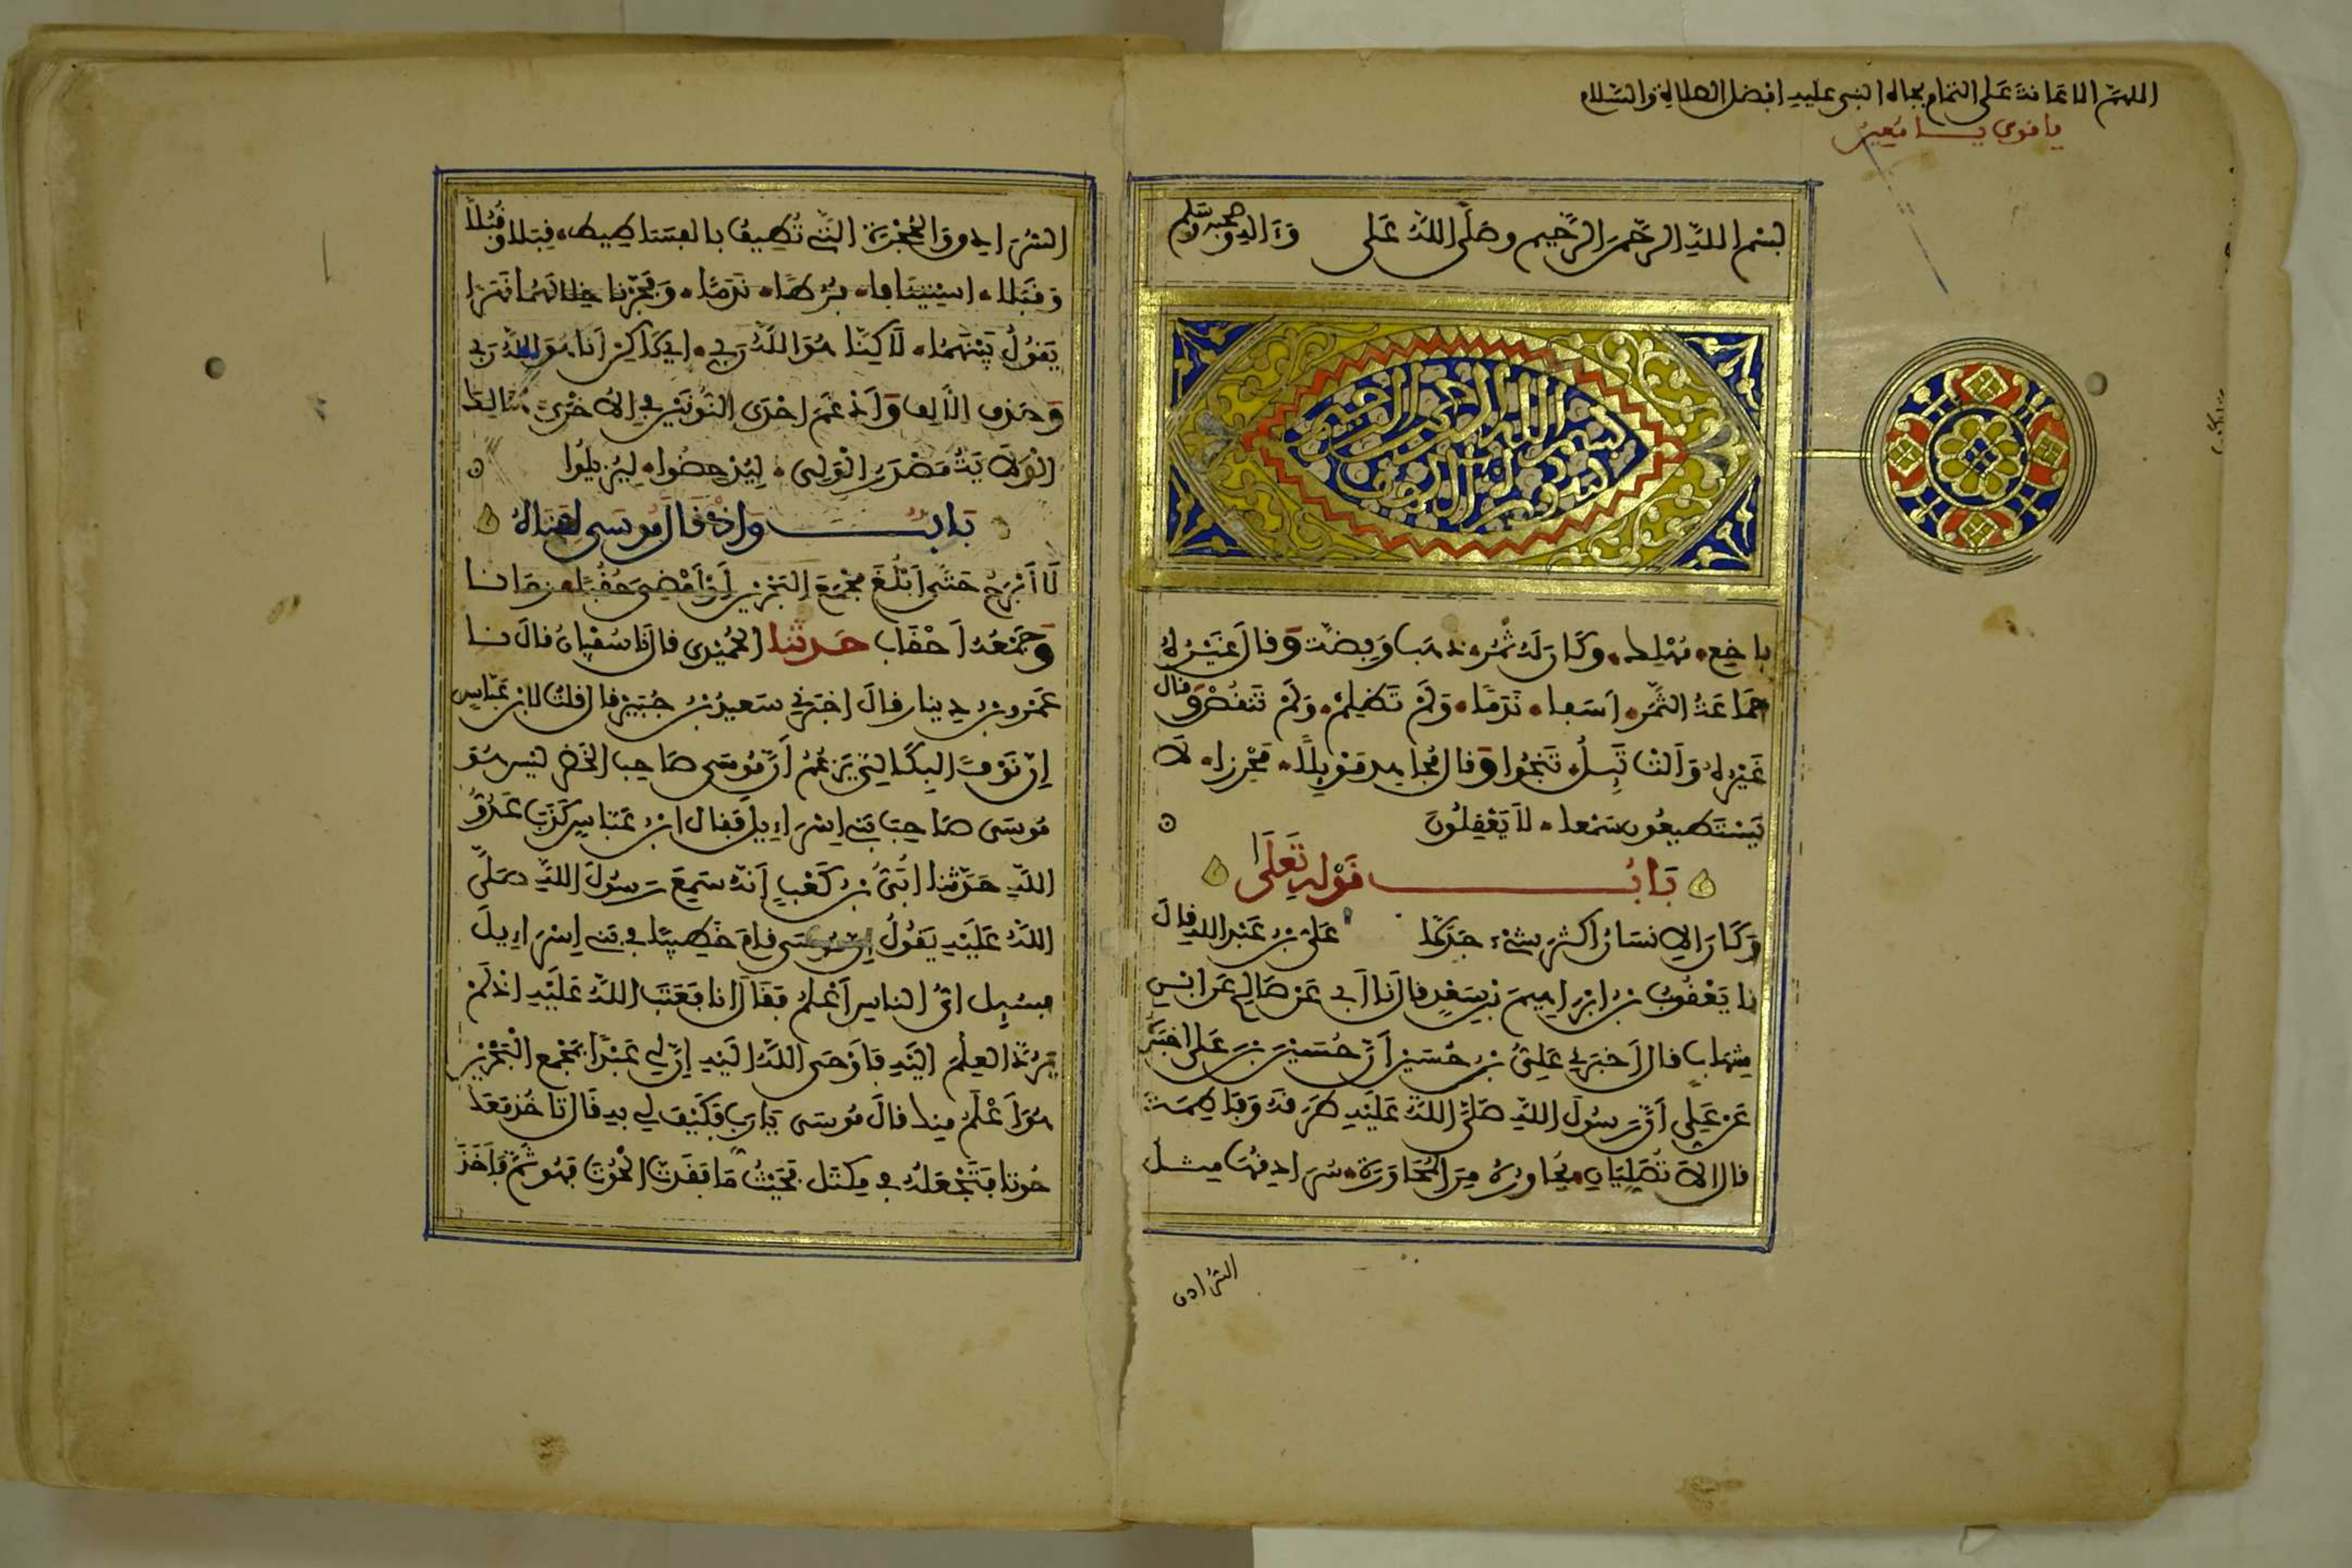 اللهم الاعانة على التمام بجاه النبي عليه افضل الصلاة والسلام
يا قوي يا معين
بسم الله الرحمن الرحيم وصلى الله على وءاله وصحبه وسلم
بسم الله الرحمن الرحيم
باخع، مهلك، وكان له ثمر، ذهب وفضة وقال غيره
جماعة الثمر، اسفا، ندما، ولم تظلم، ولم تنقص وقال
غيره وألت تئل، تنجوا وقال مجاهد موئلا، محرزا، لا
يستطيعون سمعا، لا يعقلون
باب قوله تعلى
وكان الانسان اكثر شيء جدلا علي بن عبد الله قال
نا يعقوب بن ابراهيم بن سعد قال نا أبي عن صالح عن ابن
شهاب قال أخبرني علي بن حسين أن حسين بن علي اخبره
عن علي أن رسول الله صلى الله عليه طرقه وفاطمة
قال الا تصليان، يحاوره من المحاورة، سرادقها مثل
السرادق
السرادق والحجرة التي تطيف بالفساطيط، قبلا وقبلا
وقبلا، استينافا، فرطا، ندما، وفجرنا خلالهما نهرا
يقول بينهما، لاكنا هو الله ربي، اي لاكن أنا هو الله ربي
وحذف الألف وادغم احدى النونين في الاخرى، هنالك
الولاية مصدر الولي، ليدحضوا، ليزيلوا
باب واذ قال موسى لفتاه
لا أبرح حتى أبلغ مجمع البحرين أو أمضي حقبا، زمانا
وجمعه أحقاب حدثنا الحميدي قال نا سفيان قال نا
عمرو بن دينار قال اخبرني سعيد بن جبير قال قلت لابن عباس
إن نوفا البكالي يزعم أن موسى صاحب الخضر ليس هو
موسى صاحب بني إسراءيل فقال ابن عباس كذب عدو
الله حدثنا أبي بن كعب أنه سمع رسول الله صلى
الله عليه يقول إن موسى قام خطيبا في بني إسراءيل
فسئل اي الناس أعلم فقال انا فعتب الله عليه اذ لم
يرد العلم اليه فأوحى الله اليه إن لي عبدا بمجمع البحرين
هو أعلم منك قال موسى يا رب فكيف لي به قال تأخذ معك
حوتا فتجعله في مكتل فحيث ما فقدت الحوت فهو ثم فأخذ